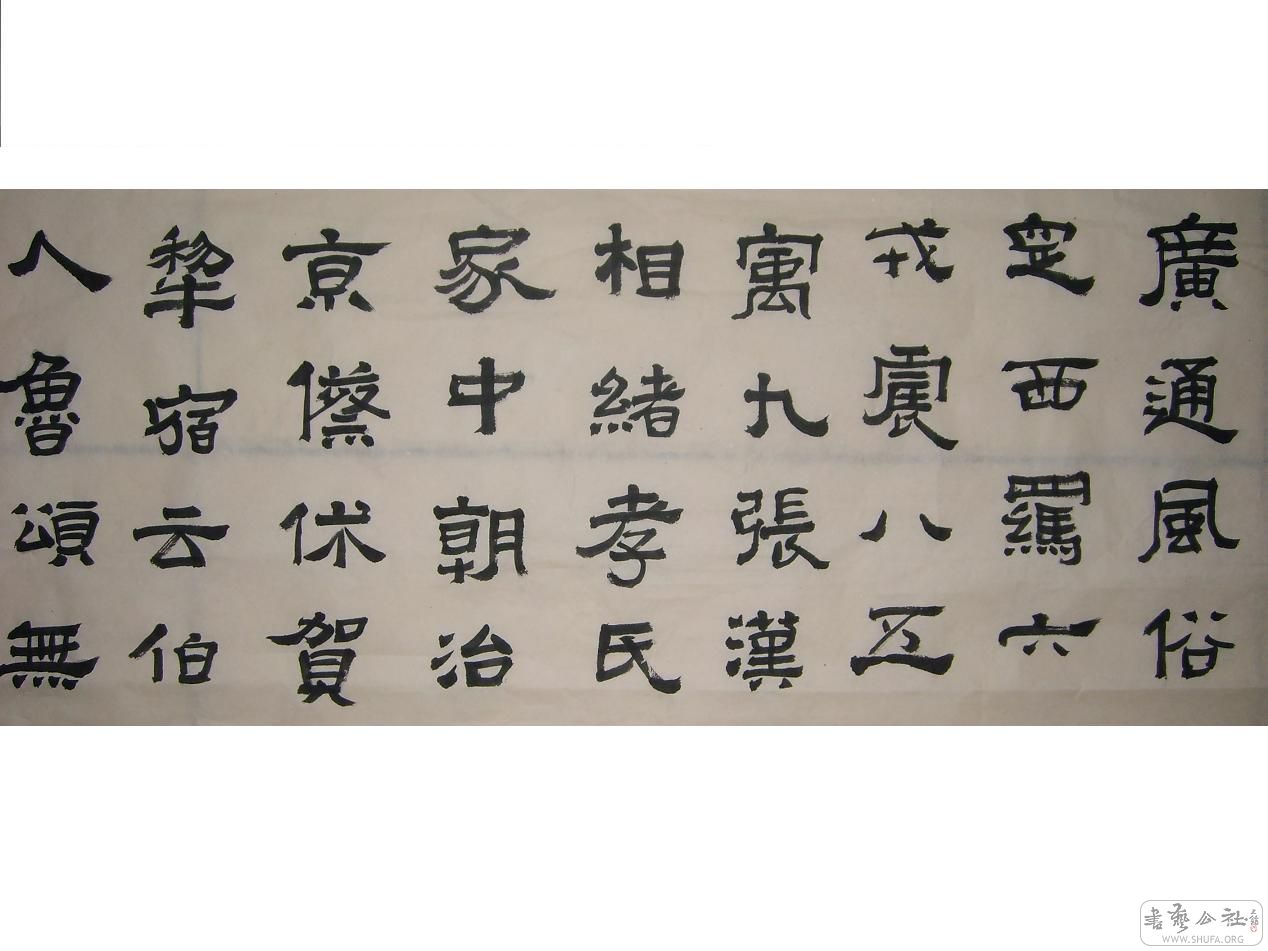 廣通風俗
定西羈六
戎震八五
寓九張漢
相緒孝民
家中朝治
京僚休賀
犂宿云伯
人魯頌無
書藝公社
WWW.SHUFA.ORG